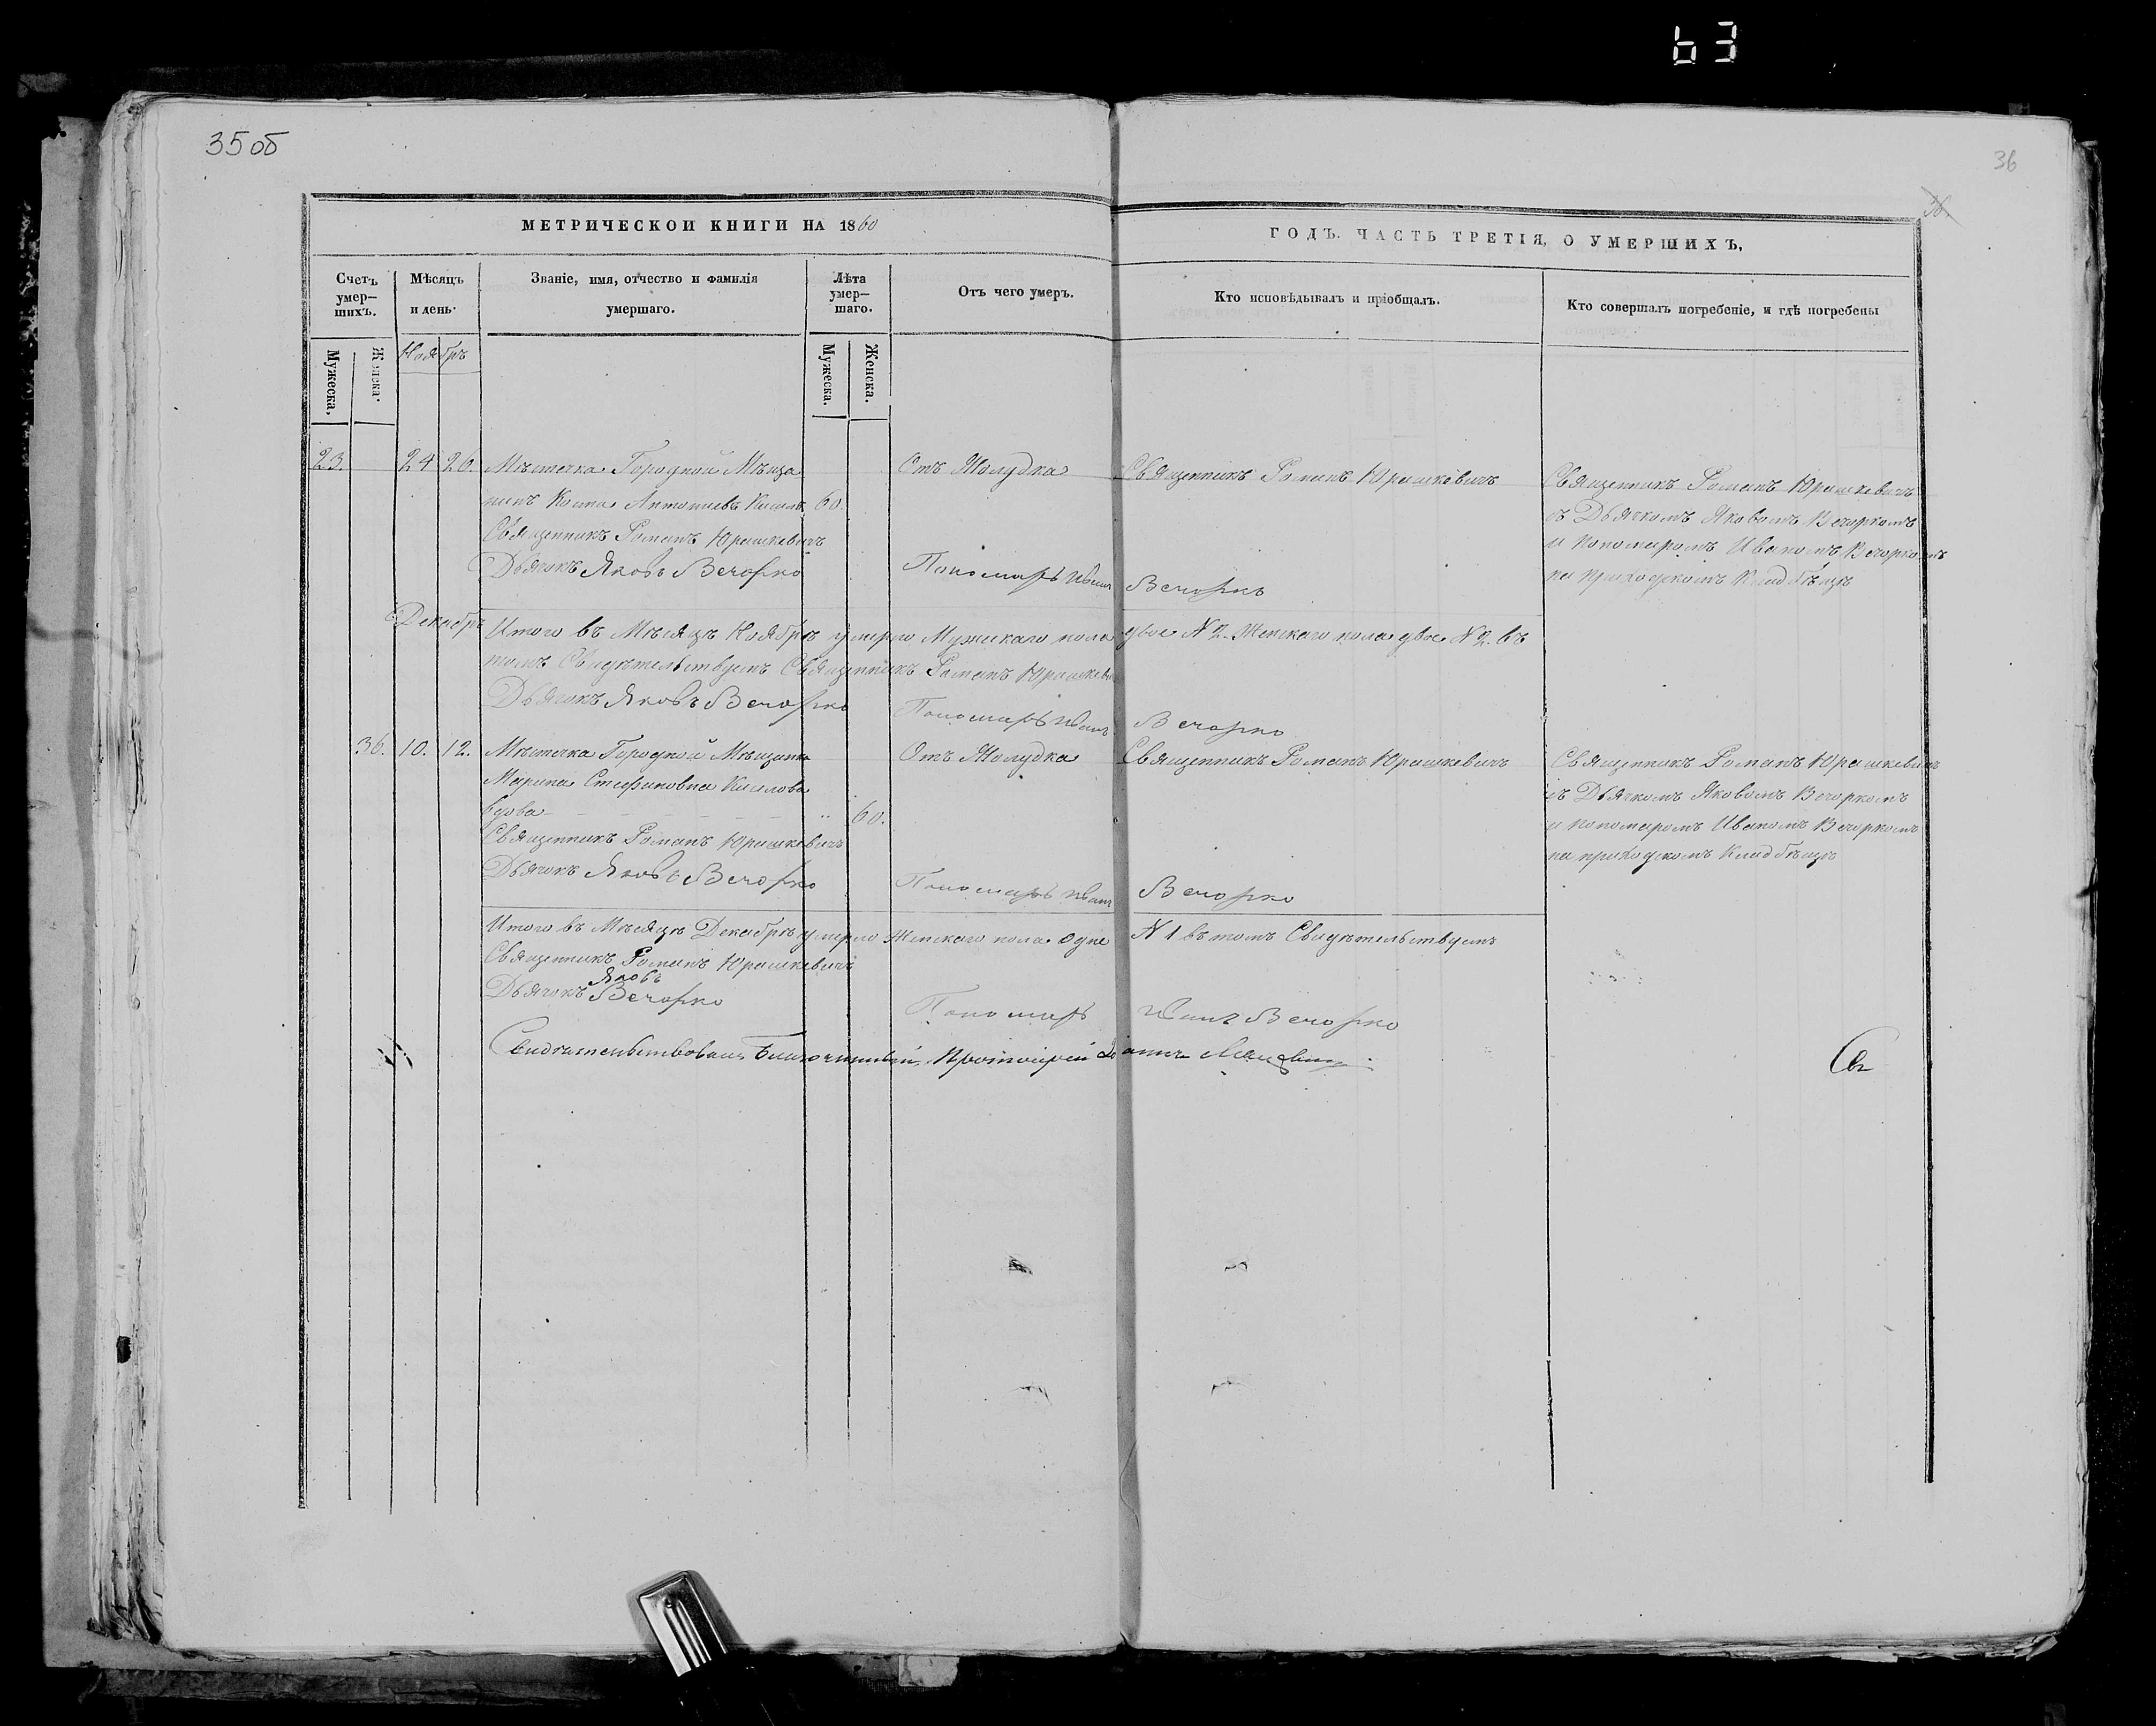 63
35 об
36
36.
МЕТРИЧЕСКОЙ КНИГИ НА 1860
ГОДЪ. ЧАСТЬ ТРЕТІЯ, О УМЕРШИХЪ,
Счетъ умер-
шихъ.
Мѣсяцъ
и день.
Званіе, имя, отчество и фамилія
умершаго.
Лѣта
умер-
шаго.
Отъ чего умеръ.
Кто исповѣдывалъ и пріобщалъ.
Кто совершалъ погребеніе, и гдѣ погребены
Мужеска,
Женска.
Ноябрь
Мужеска.
Женска.
23. 24 26. Мѣстечка Городной Мѣща
Отъ Жолудка
Священникъ Романъ Юрашкевичъ
Священникъ Романъ Юрашкевичъ
нинъ Антоніевъ 60.
съ Дьячкомъ Яковомъ Вечоркомъ
Священникъ Романъ Юрашкевичъ
и пономаромъ Иваномъ Вечоркомъ
Дьячокъ Яковъ Вечорко
Пономарь Иванъ Вечорко
на приходскомъ кладбѣщѣ
Декабрь
Итого въ Мѣсяцѣ Ноябрѣ умерло Мужескаго пола двое №2. Женскаго пола двое №2. въ
томъ Свидѣтельствуемъ Священникъ Романъ Юрашкевичъ
Дьячокъ Яковъ Вечорко
Пономарь Иванъ Вечорко
36. 10. 12. Мѣстечка Городной Мѣщанка
Отъ Жолудка
Священникъ Романъ Юрашкевичъ
Священникъ Романъ Юрашкевичъ
Марина Стефановна Кислова
съ Дьячкомъ Яковомъ Вечоркомъ
вдова 60.
и пономаромъ Иваномъ Вечоркомъ
Священникъ Романъ Юрашкевичъ
на приходскомъ кладбѣщѣ
Дьячокъ Яковъ Вечорко
Пономарь Иванъ Вечорко
Итого въ Мѣсяцѣ Декабрѣ умерло Женскаго пола одне №1 въ томъ Свидѣтельствуемъ
Священникъ Романъ Юрашкевичъ
Яковъ
Дьячокъ Вечорко
Пономарь Иванъ Вечорко
Свидѣтельствовалъ Благочинный Протоіерей
Св